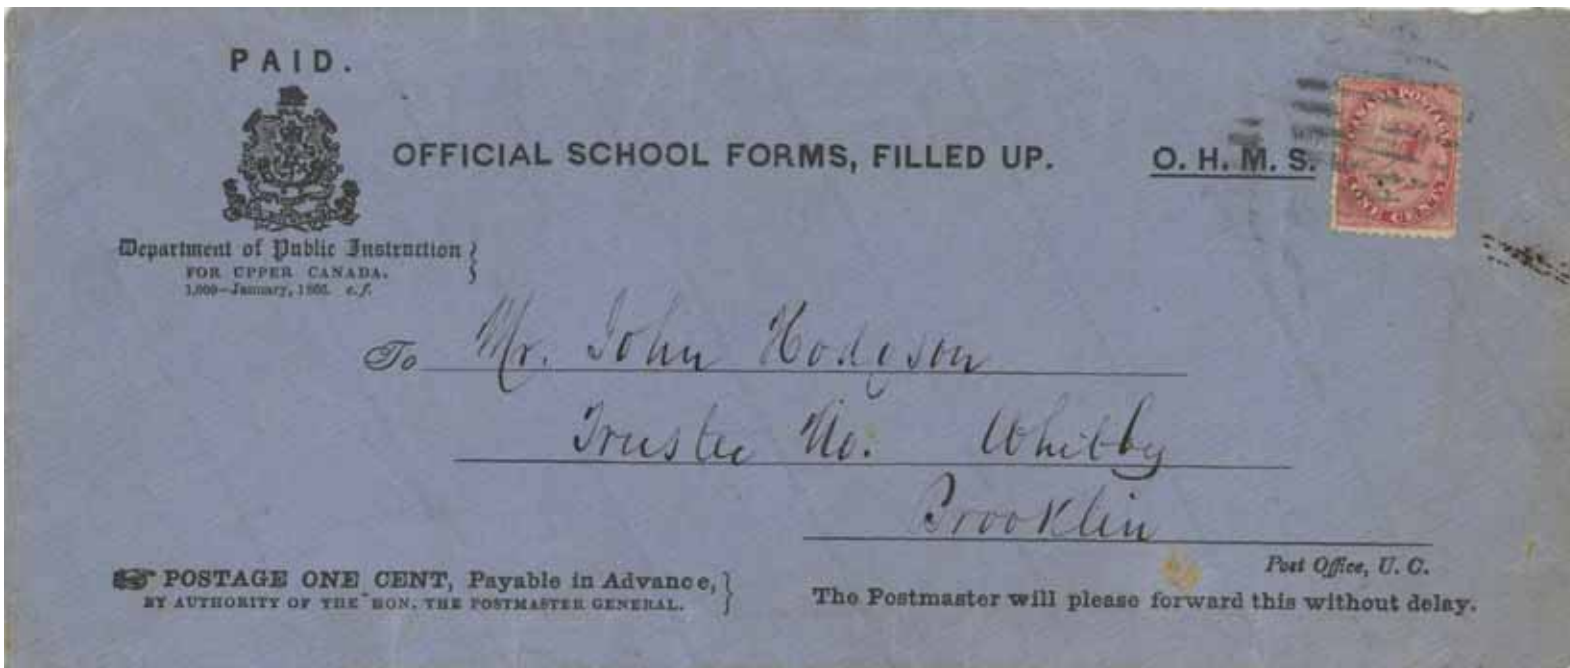 PAID.
OFFICIAL SCHOOL FORMS, FILLED UP.
O. H. M. S.
CANADA POSTAGE
ONE CENT
Department of Public Instruction
FOR UPPER CANADA.
1,000—January, 1866. e.f.
To Mr. John Hodgson
Trustee No. Whitby
Brooklin
Post Office, U. C.
POSTAGE ONE CENT, Payable in Advance,
BY AUTHORITY OF THE HON. THE POSTMASTER GENERAL.
The Postmaster will please forward this without delay.